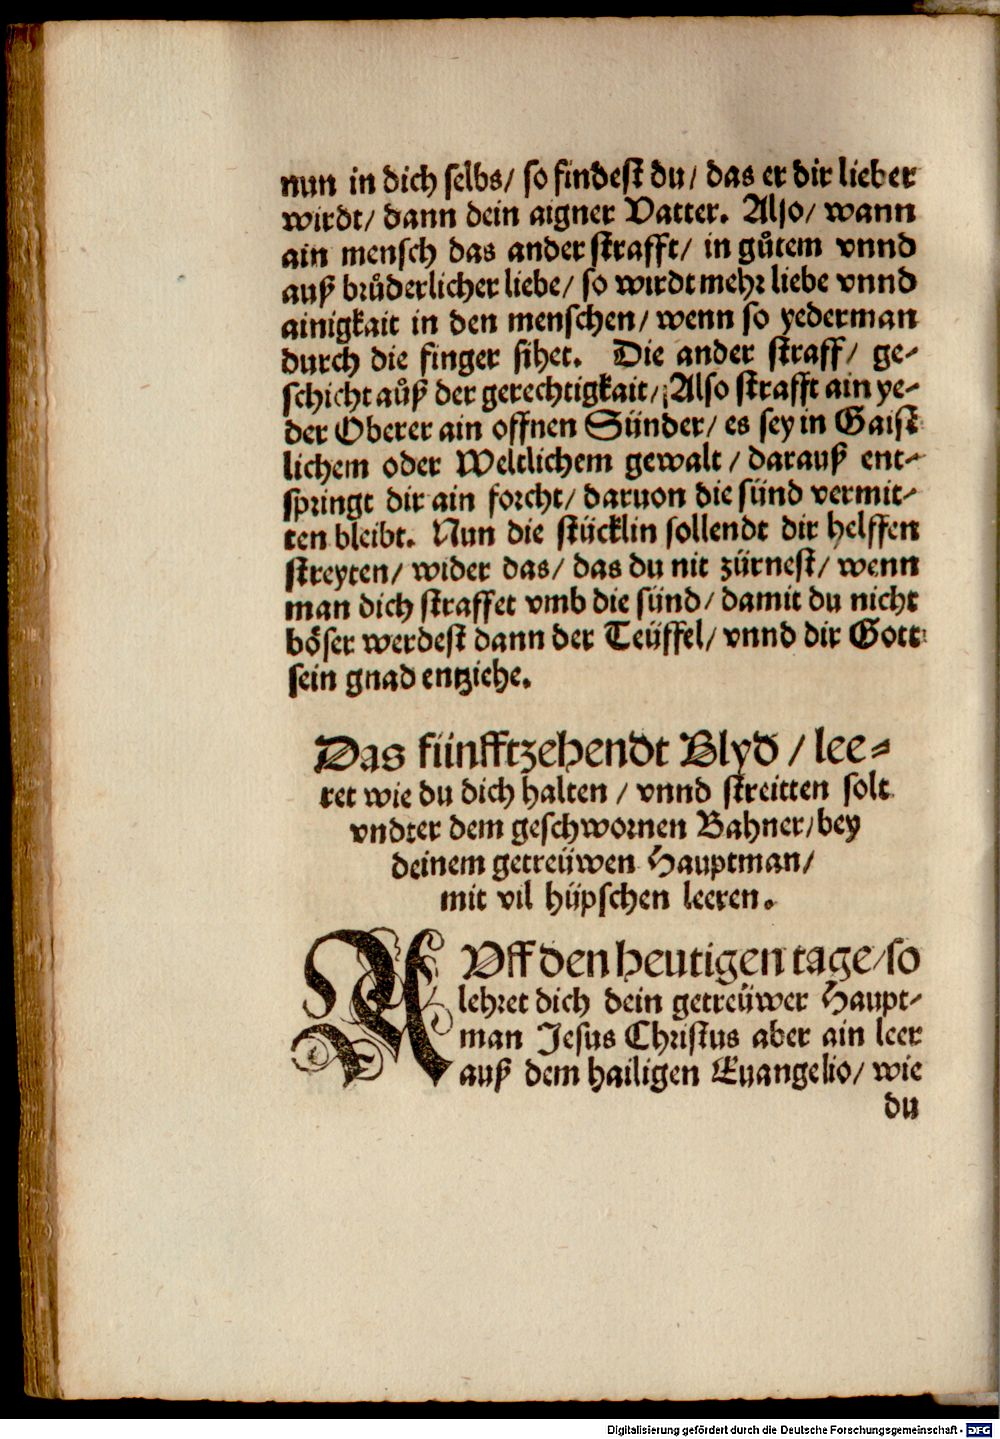 nun in dich selbs/ so findest du/ das er dir lieber
wirdt/ dann dein aigner Vatter. Also/ wann
ain mensch das ander strafft/ in gůtem vnnd
auß brůderlicher liebe/ so wirdt mehr liebe vnnd
ainigkait in den menschen/ wenn so yederman
durch die finger sihet. Die ander straff/ ge-
schicht auß der gerechtigkait/ Also strafft ain ye-
der Oberer ain offnen Sünder/ es sey in Gaist
lichem oder Weltlichem gewalt/ darauß ent-
springt dir ain forcht/ daruon die sünd vermit-
ten bleibt. Nun die stücklin sollendt dir helffen
streyten/ wider das/ das du nit zürnest/ wenn
man dich straffet vmb die sünd/ damit du nicht
böser werdest dann der Teüffel/ vnnd dir Gott
sein gnad entziehe.
Das fünfftzehendt Blyd/ lee-
ret wie du dich halten/ vnnd streitten solt
vndter dem geschwornen Bahner/ bey
deinem getreüwen Hauptman/
mit vil hüpschen leeren.
AVff den heutigen tage/ so
lehret dich dein getreüwer Haupt-
man Jesus Christus aber ain leer
auß dem hailigen Euangelio/ wie
du
Digitalisierung gefördert durch die Deutsche Forschungsgemeinschaft - DFG